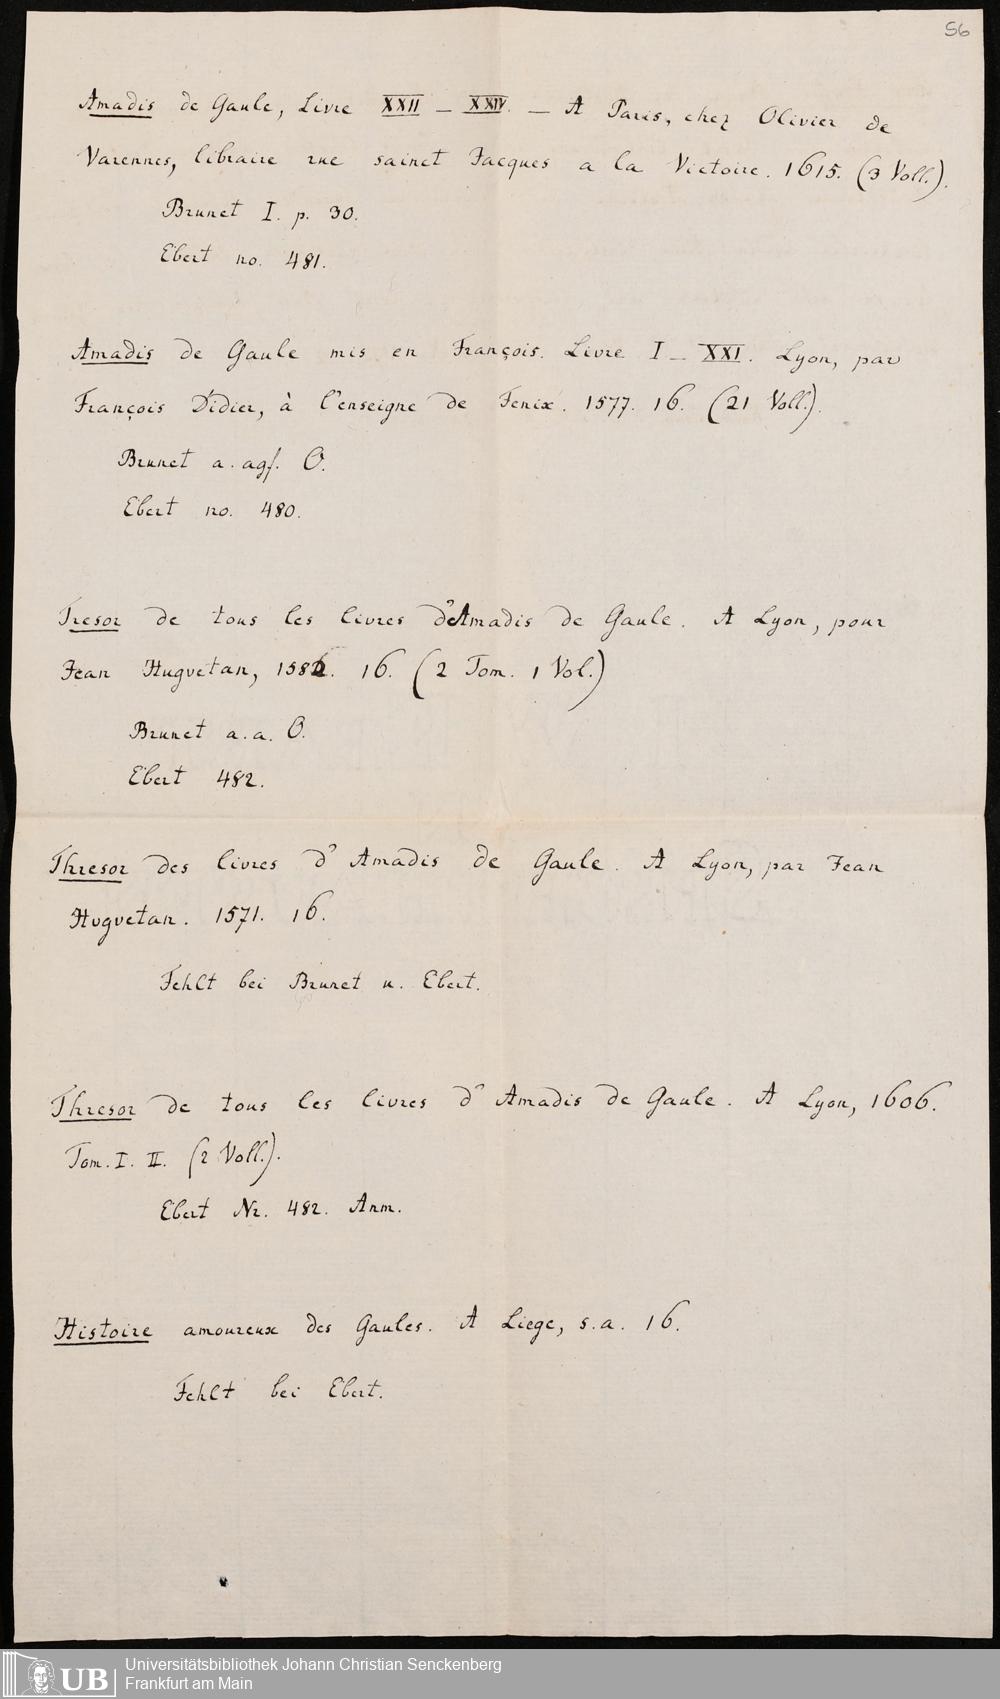 56
Amadis de Gaule, Livre XXII – XXIV. – A Paris, chez Olivier de
Varennes, libraire rue sainct Jacques a la Victoire. 1615. (3 Voll.).
Brunet I. p. 30.
Ebert no. 481.
Amadis de Gaule mis en François. Livre I – XXI. Lyon, par
François Didier, à l'enseigne de Fenix. 1577. 16. (21 Voll.).
Brunet a. agf. O.
Ebert no. 480.
Tresor de tous les livres d'Amadis de Gaule. A Lyon, pour
Jean Huguetan, 1582. 16. (2 Tom. 1 Vol.)
Brunet a. a. O.
Ebert 482.
Thresor des livres d'Amadis de Gaule. A Lyon, par Jean
Huguetan. 1571. 16.
Fehlt bei Brunet u. Ebert.
Thresor de tous les livres d'Amadis de Gaule. A Lyon, 1606.
Tom. I. II. (2 Voll.).
Ebert Nr. 482. Anm.
Histoire amoureux des Gaules. A Liege, s. a. 16.
Fehlt bei Ebert.
UB Universitätsbibliothek Johann Christian Senckenberg
Frankfurt am Main